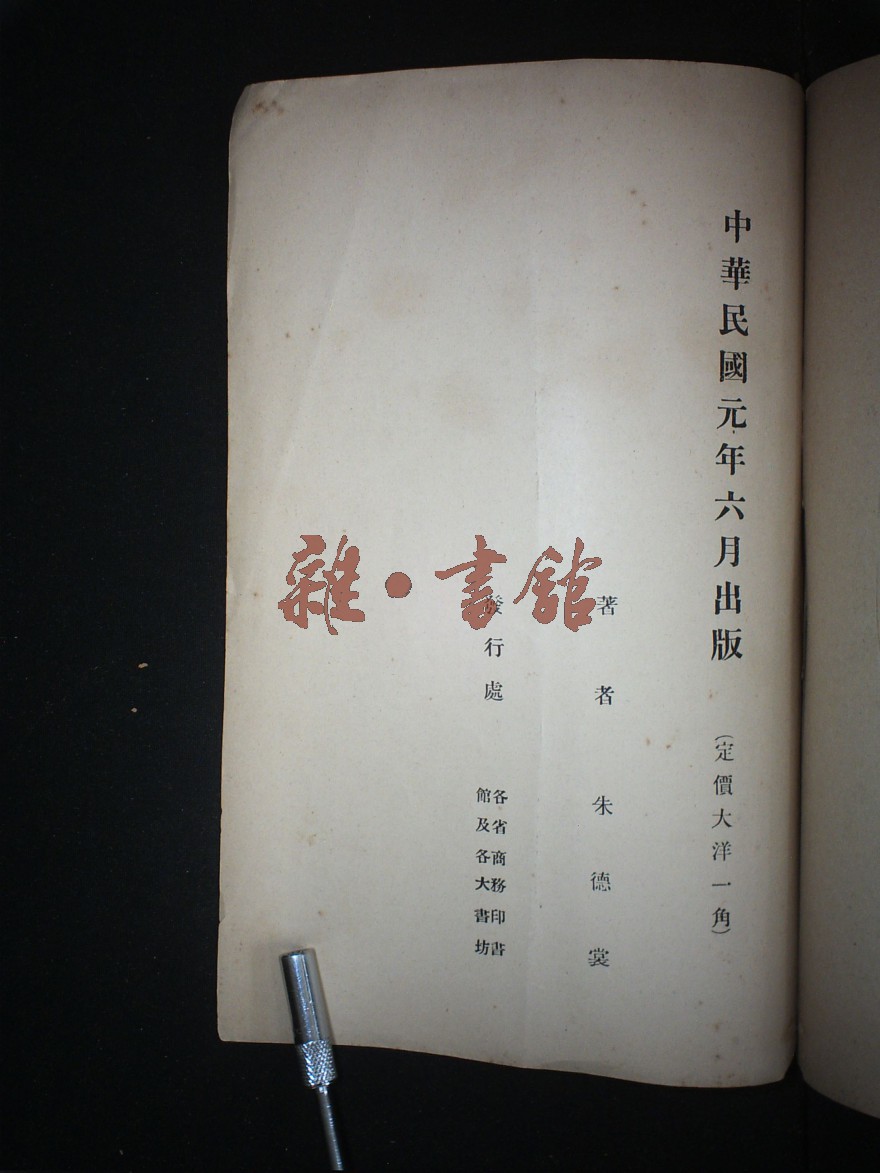 中華民國元年六月出版
(定價大洋一角)
著者 朱德裳
發行處
各省商務印書
館及各大書坊
雜·書館